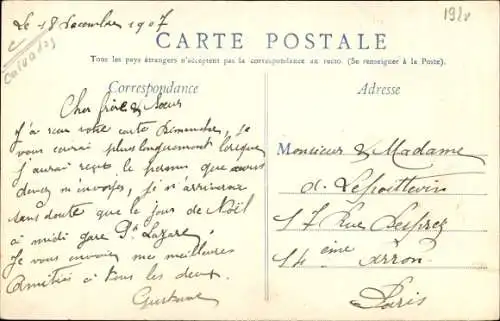 Le 18 Décembre 1907
192
Calvados
CARTE POSTALE
Tous les pays étrangers n'acceptent pas la correspondance au recto. (Se renseigner à la Poste).
Correspondance
Cher frère & Sœur
J'ai reçu votre carte Dimanche, je
vous écrirai plus longuement lorsque
j'aurai reçu le permis que vous
devez m'envoyer, je n'arriverai
sans doute que le jour de Noël
à midi gare St Lazare.
Je vous envoie mes meilleures
Amitiés à tous les deux.
Gustave
Adresse
Monsieur & Madame
A. Lepoittevin
17 Rue Desprez
14 ème Arron
Paris